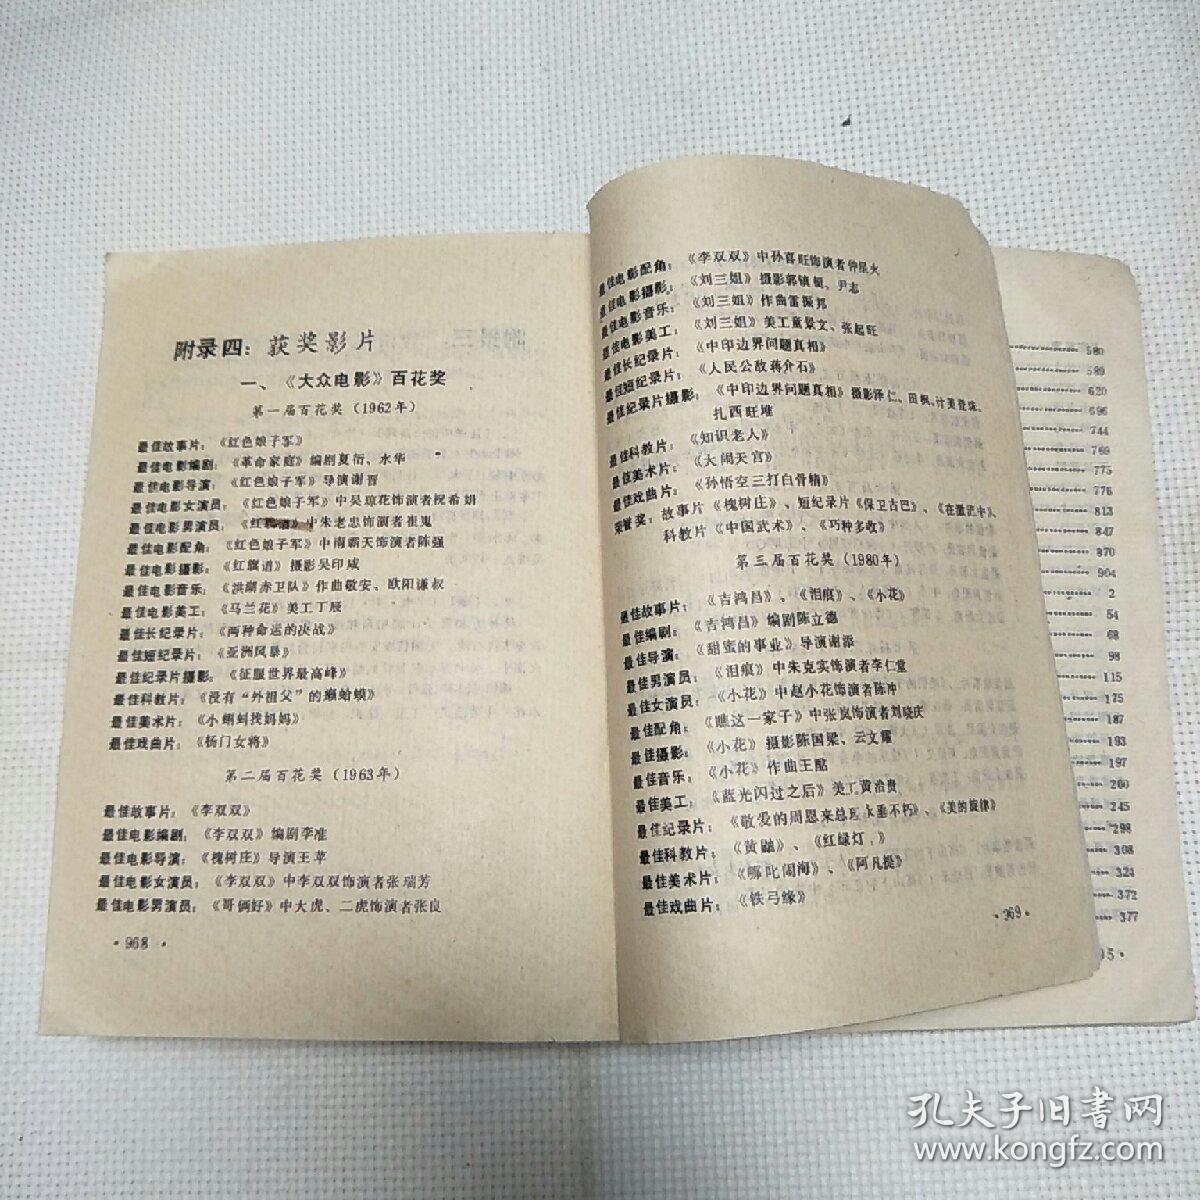 附录四：获奖影片
一、《大众电影》百花奖
第一届百花奖（1962年）
最佳故事片：《红色娘子军》
最佳电影编剧：《革命家庭》编剧夏衍、水华
最佳电影导演：《红色娘子军》导演谢晋
最佳电影女演员：《红色娘子军》中吴琼花饰演者祝希娟
最佳电影男演员：《红旗谱》中朱老忠饰演者崔嵬
最佳电影配角：《红色娘子军》中南霸天饰演者陈强
最佳电影摄影：《红旗谱》摄影吴印咸
最佳电影音乐：《洪湖赤卫队》作曲敬安、欧阳谦叔
最佳电影美工：《马兰花》美工丁辰
最佳长纪录片：《两种命运的决战》
最佳短纪录片：《亚洲风暴》
最佳纪录片摄影：《征服世界最高峰》
最佳科教片：《没有“外祖父”的癞蛤蟆》
最佳美术片：《小蝌蚪找妈妈》
最佳戏曲片：《杨门女将》
第二届百花奖（1963年）
最佳故事片：《李双双》
最佳电影编剧：《李双双》编剧李准
最佳电影导演：《槐树庄》导演王苹
最佳电影女演员：《李双双》中李双双饰演者张瑞芳
最佳电影男演员：《哥俩好》中大虎、二虎饰演者张良
·968·
最佳电影配角：《李双双》中孙喜旺饰演者仲星火
最佳电影摄影：《刘三姐》摄影郭镇铤、尹志
最佳电影音乐：《刘三姐》作曲雷振邦
最佳电影美工：《刘三姐》美工童景文、张起旺
最佳长纪录片：《中印边界问题真相》
最佳短纪录片：《人民公敌蒋介石》
最佳纪录片摄影：《中印边界问题真相》摄影泽仁、田枫、计美登珠、
扎西旺堆
最佳科教片：《知识老人》
最佳美术片：《大闹天宫》
最佳戏曲片：《孙悟空三打白骨精》
荣誉奖：故事片《槐树庄》、短纪录片《保卫古巴》、《在激流中》、
科教片《中国武术》、《巧种多收》
第三届百花奖（1980年）
最佳故事片：《吉鸿昌》、《泪痕》、《小花》
最佳编剧：《吉鸿昌》编剧陈立德
最佳导演：《甜蜜的事业》导演谢添
最佳男演员：《泪痕》中朱克实饰演者李仁堂
最佳女演员：《小花》中赵小花饰演者陈冲
最佳配角：《瞧这一家子》中张岚饰演者刘晓庆
最佳摄影：《小花》摄影陈国梁、云文耀
最佳音乐：《小花》作曲王酩
最佳美工：《蓝光闪过之后》美工黄治贵
最佳纪录片：《敬爱的周恩来总理永垂不朽》、《美的旋律》
最佳科教片：《黄鼬》、《红绿灯，》
最佳美术片：《哪吒闹海》、《阿凡提》
最佳戏曲片：《铁弓缘》
·969·
580
589
620
696
744
769
775
776
813
847
870
904
2
54
68
98
115
175
187
193
197
200
245
298
308
323
372
377
15·
孔夫子旧书网
www.kongfz.com